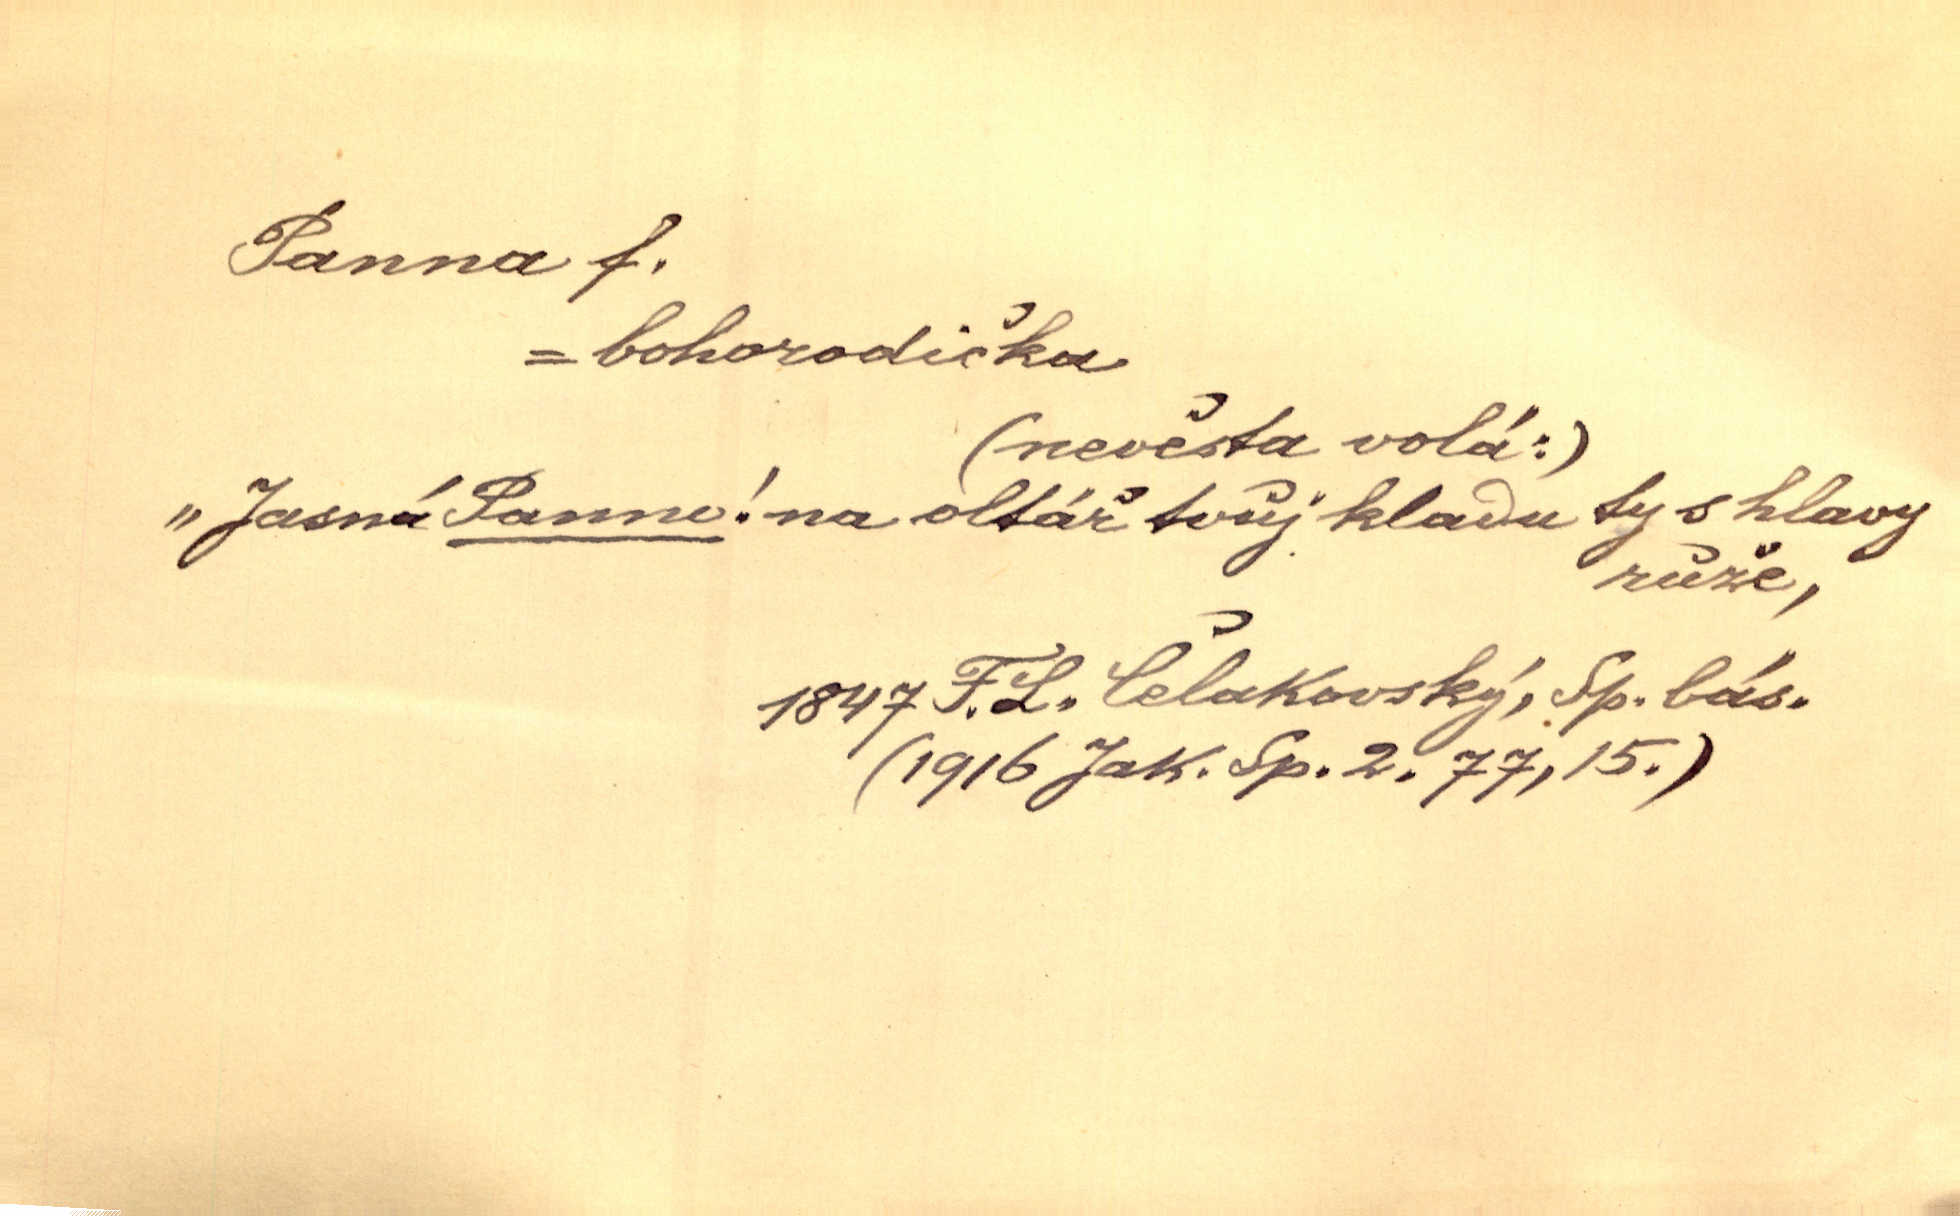 Panna f.
= bohorodička
(nevěsta volá:)
„Jasná Panno! na oltář tvůj kladu ty s hlavy
růže,
1847 F. L. Čelakovský, Sp. bás.
(1916 Jak. Sp. 2. 77, 15.)